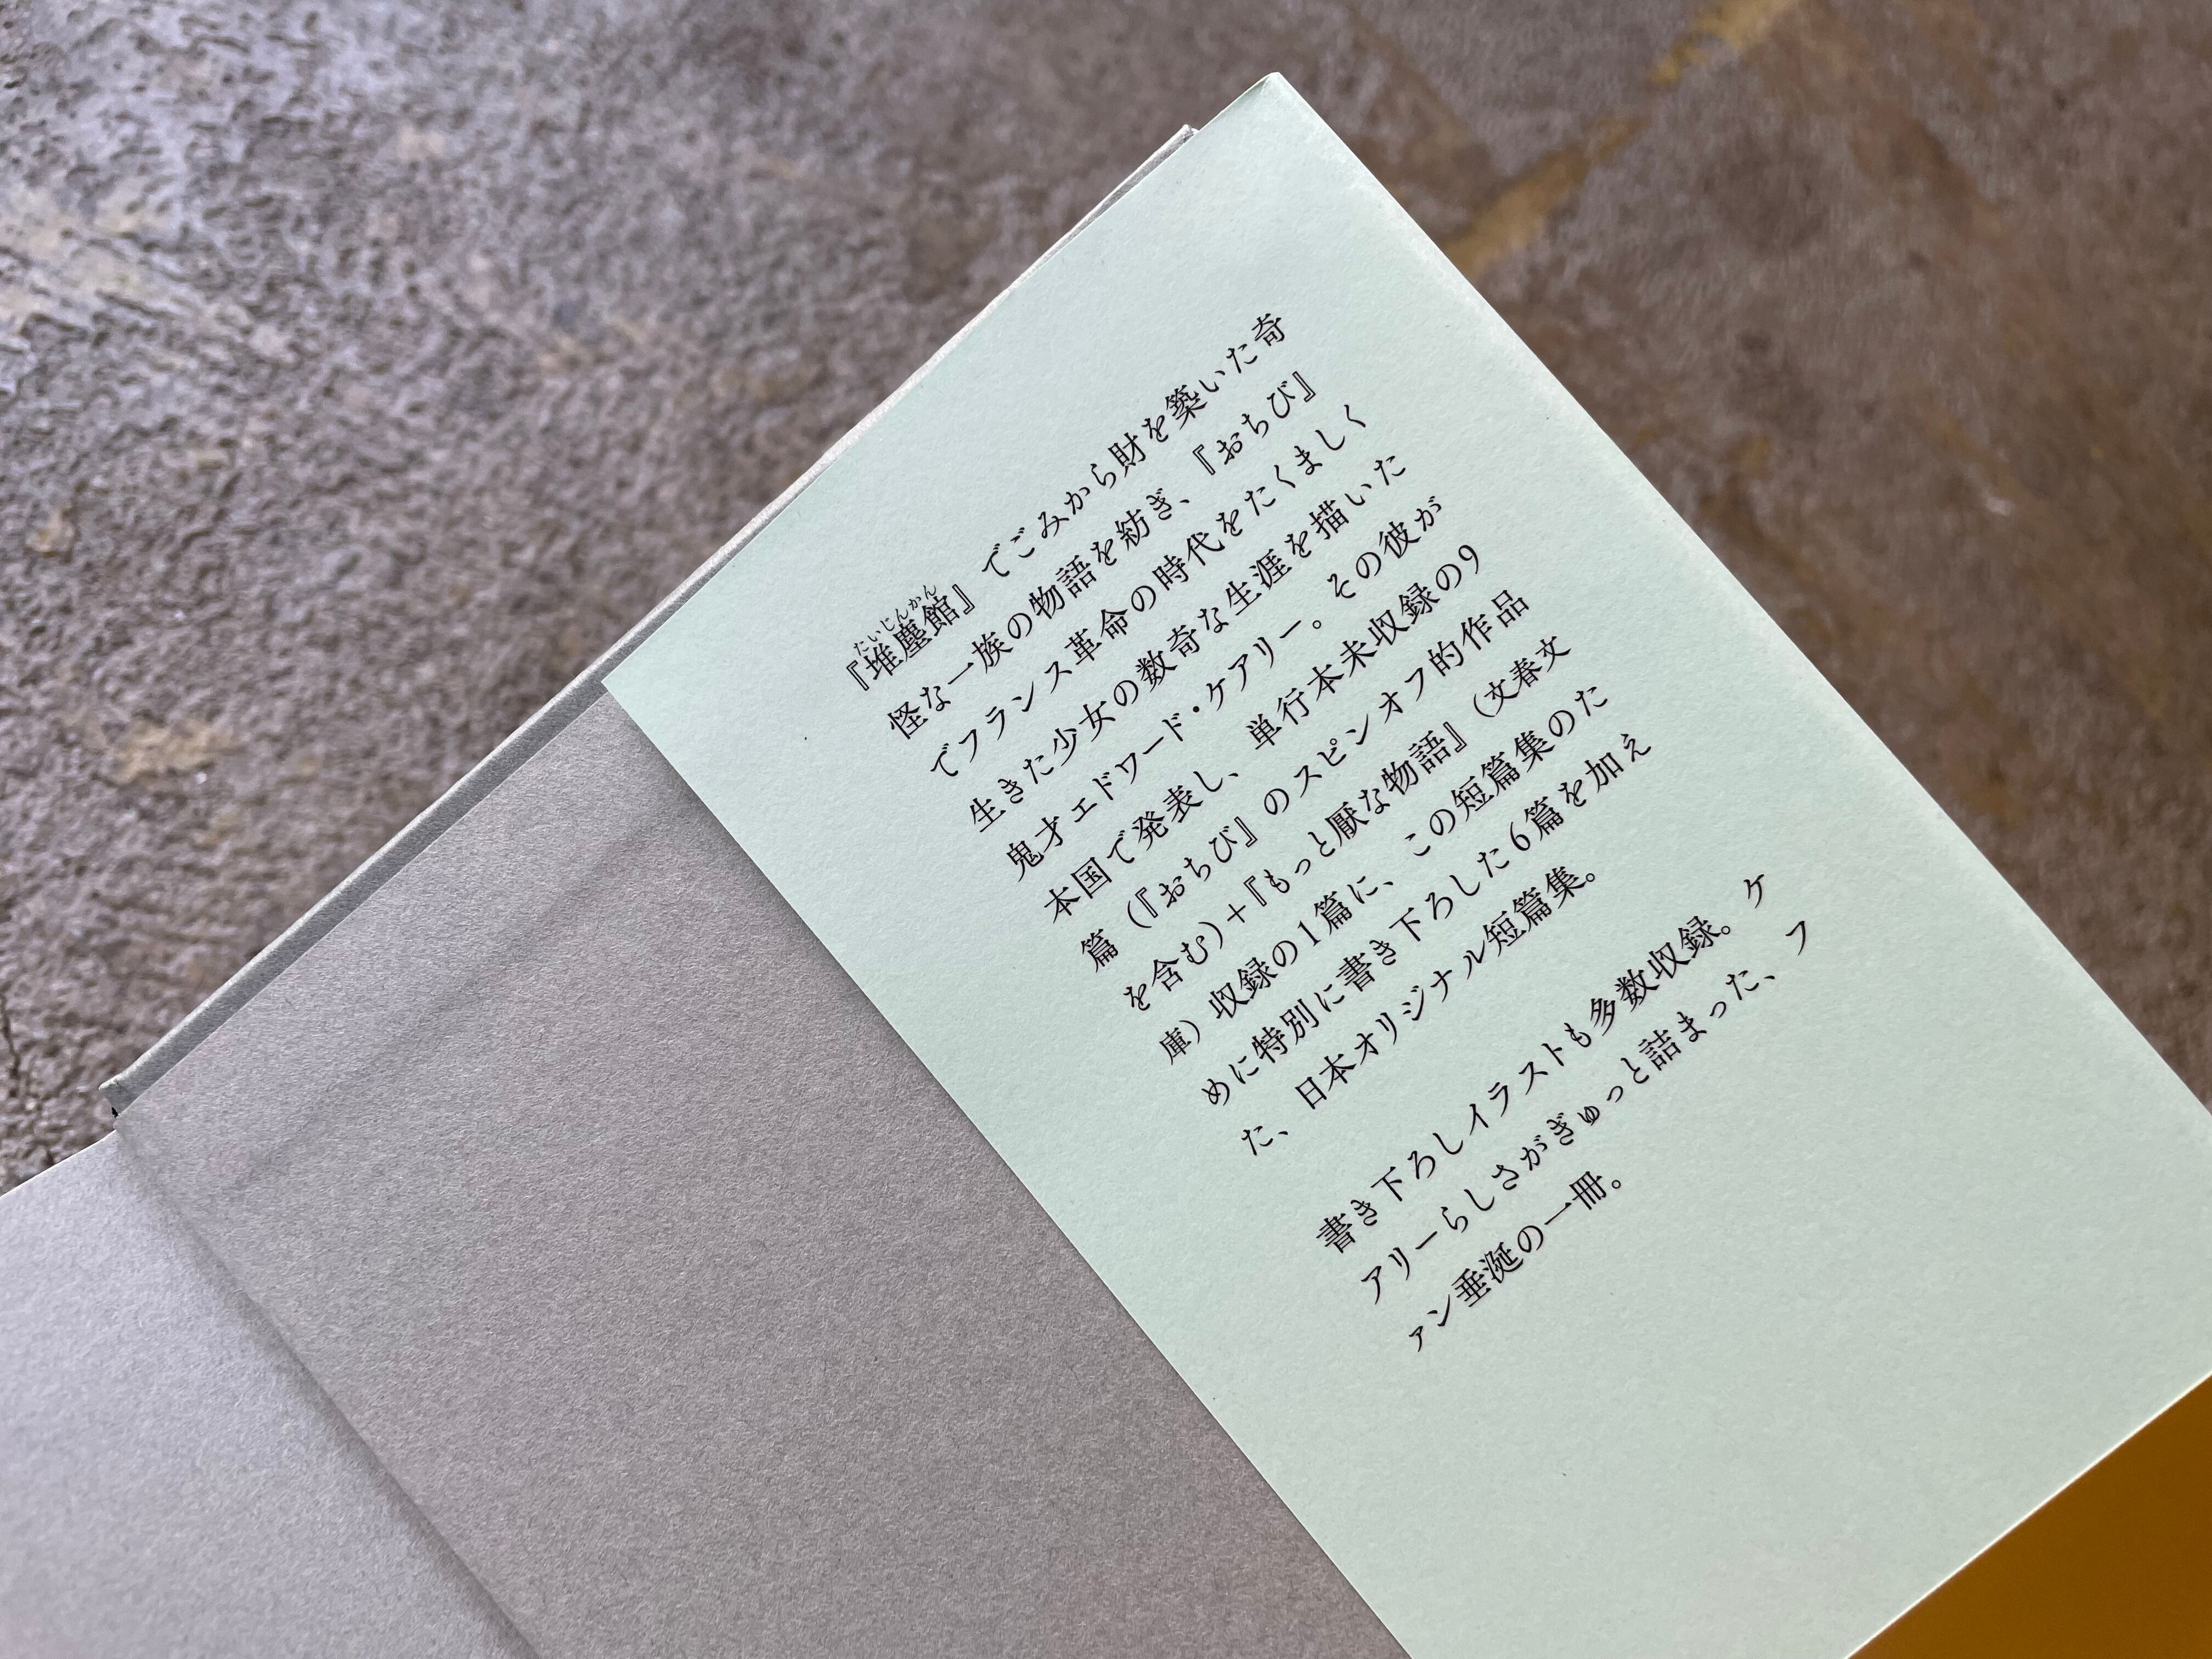 『堆塵館』でごみから財を築いた奇
たいじんかん
怪な一族の物語を紡ぎ、『おちび』
でフランス革命の時代をたくましく
生きた少女の数奇な生涯を描いた
鬼才エドワード・ケアリー。その彼が
本国で発表し、単行本未収録の9
篇（『おちび』のスピンオフ的作品
を含む）＋『もっと厭な物語』（文春文
庫）収録の1篇に、この短篇集のた
めに特別に書き下ろした6篇を加え
た、日本オリジナル短篇集。
書き下ろしイラストも多数収録。ケ
アリーらしさがぎゅっと詰まった、フ
ァン垂涎の一冊。